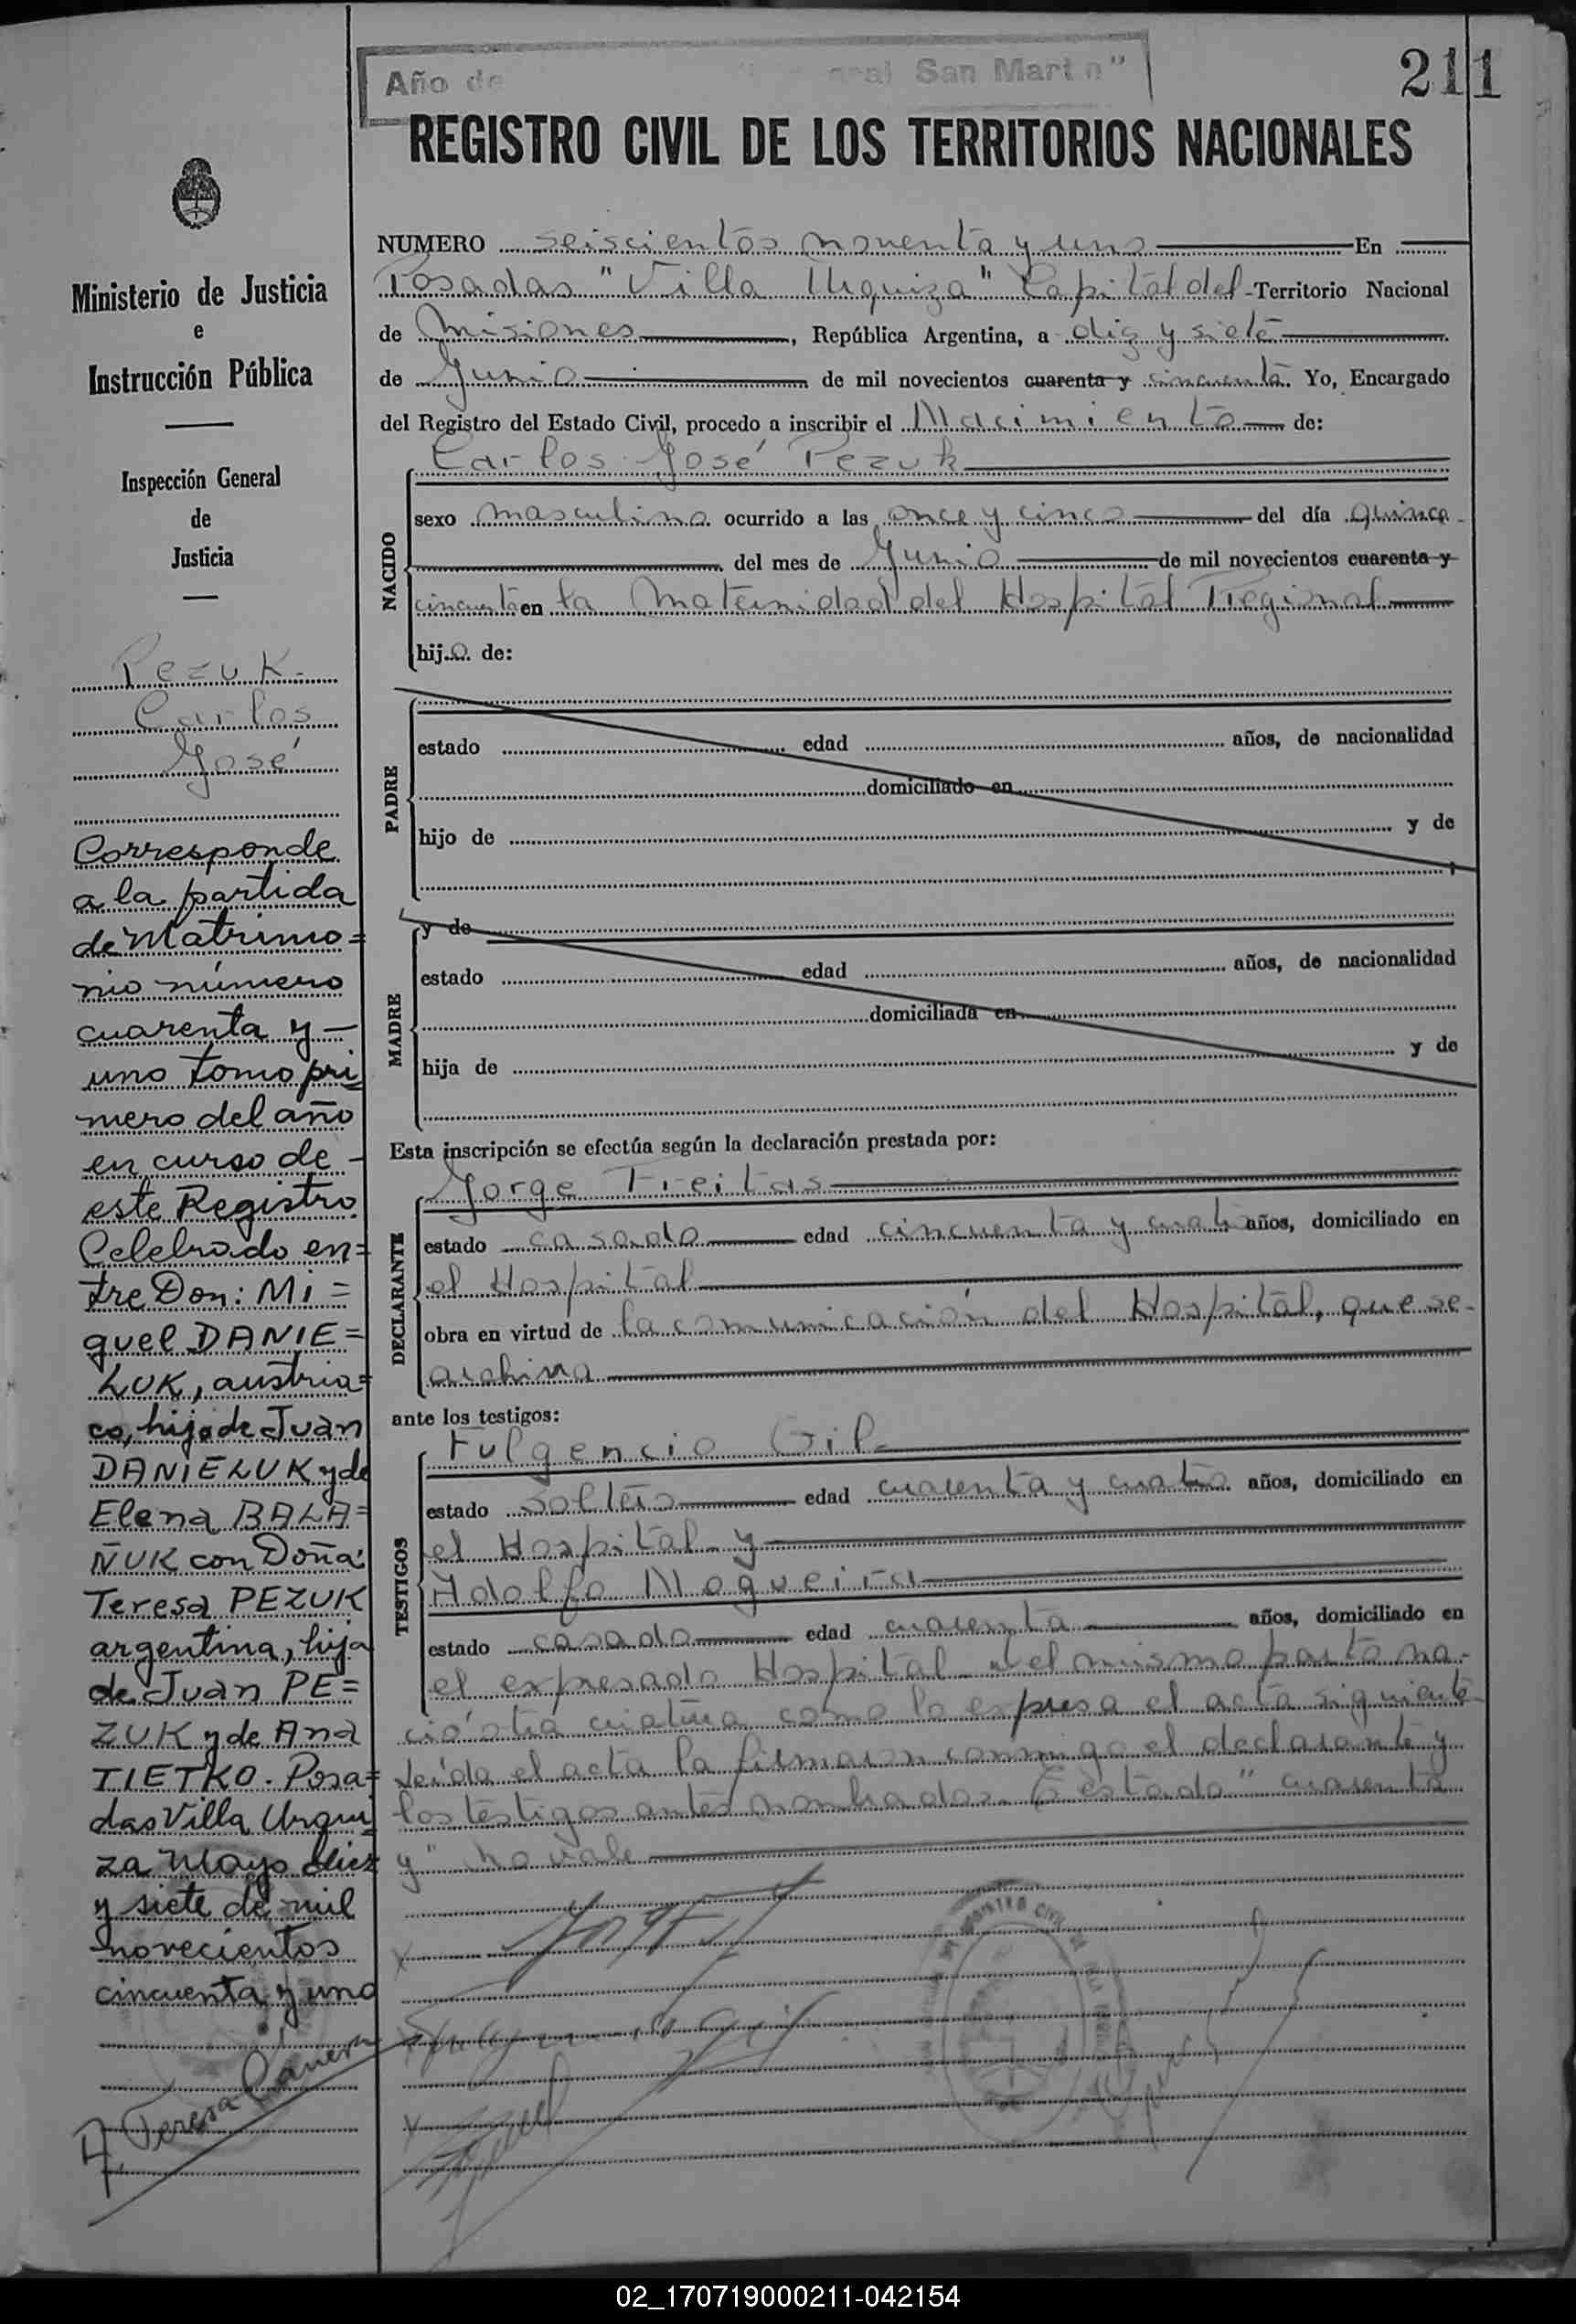 Año de
San Martin"
211
REGISTRO CIVIL DE LOS TERRITORIOS NACIONALES
NUMERO seiscientos noventa y uno En
Posadas "Villa Urquiza" Capital del Territorio Nacional
de Misiones, República Argentina, a diez y siete
de Junio de mil novecientos cuarenta y cincuenta. Yo, Encargado
del Registro del Estado Civil, procedo a inscribir el Nacimiento de:
Carlos José Pezuk
NACIDO
sexo masculino ocurrido a las once y cinco del día quince
del mes de Junio de mil novecientos cuarenta y
cincuenta en la Maternidad del Hospital Regional
hijo de:
PADRE
estado edad años, de nacionalidad
domiciliado en
hijo de y de
MADRE
y de
estado edad años, de nacionalidad
domiciliada en
hija de y de
Esta inscripción se efectúa según la declaración prestada por:
DECLARANTE
Jorge Freitas
estado casado edad cincuenta y cuatro años, domiciliado en
el Hospital
obra en virtud de la comunicación del Hospital, que se
archiva
ante los testigos:
TESTIGOS
Fulgencio Gil
estado soltero edad cuarenta y cuatro años, domiciliado en
el Hospital y
Adolfo Nogueira
estado casado edad cuarenta años, domiciliado en
el expresado Hospital del mismo parto na-
ció otra criatura como lo expresa el acta siguiente
Leída el acta la firmaron conmigo el declarante y
los testigos antes nombrados. Testado "cuarenta
y" no vale
Ministerio de Justicia
e
Instrucción Pública
Inspección General
de
Justicia
Pezuk
Carlos
José
Corresponde
a la partida
de Matrimo=
nio número
cuarenta y
uno tomo pri
mero del año
en curso de
este Registro
Celebrado en=
tre Don: Mi=
guel DANIE=
LUK, austria=
co, hijo de Juan
DANIELUK y de
Elena BALA=
ÑUK con Doña
Teresa PEZUK
argentina, hija
de Juan PE=
ZUK y de Ana
TIETKO. Posa=
das Villa Urqui
za Mayo diez
y siete de mil
novecientos
cincuenta y uno
Teresa
REGISTRO CIVIL
02_170719000211-042154